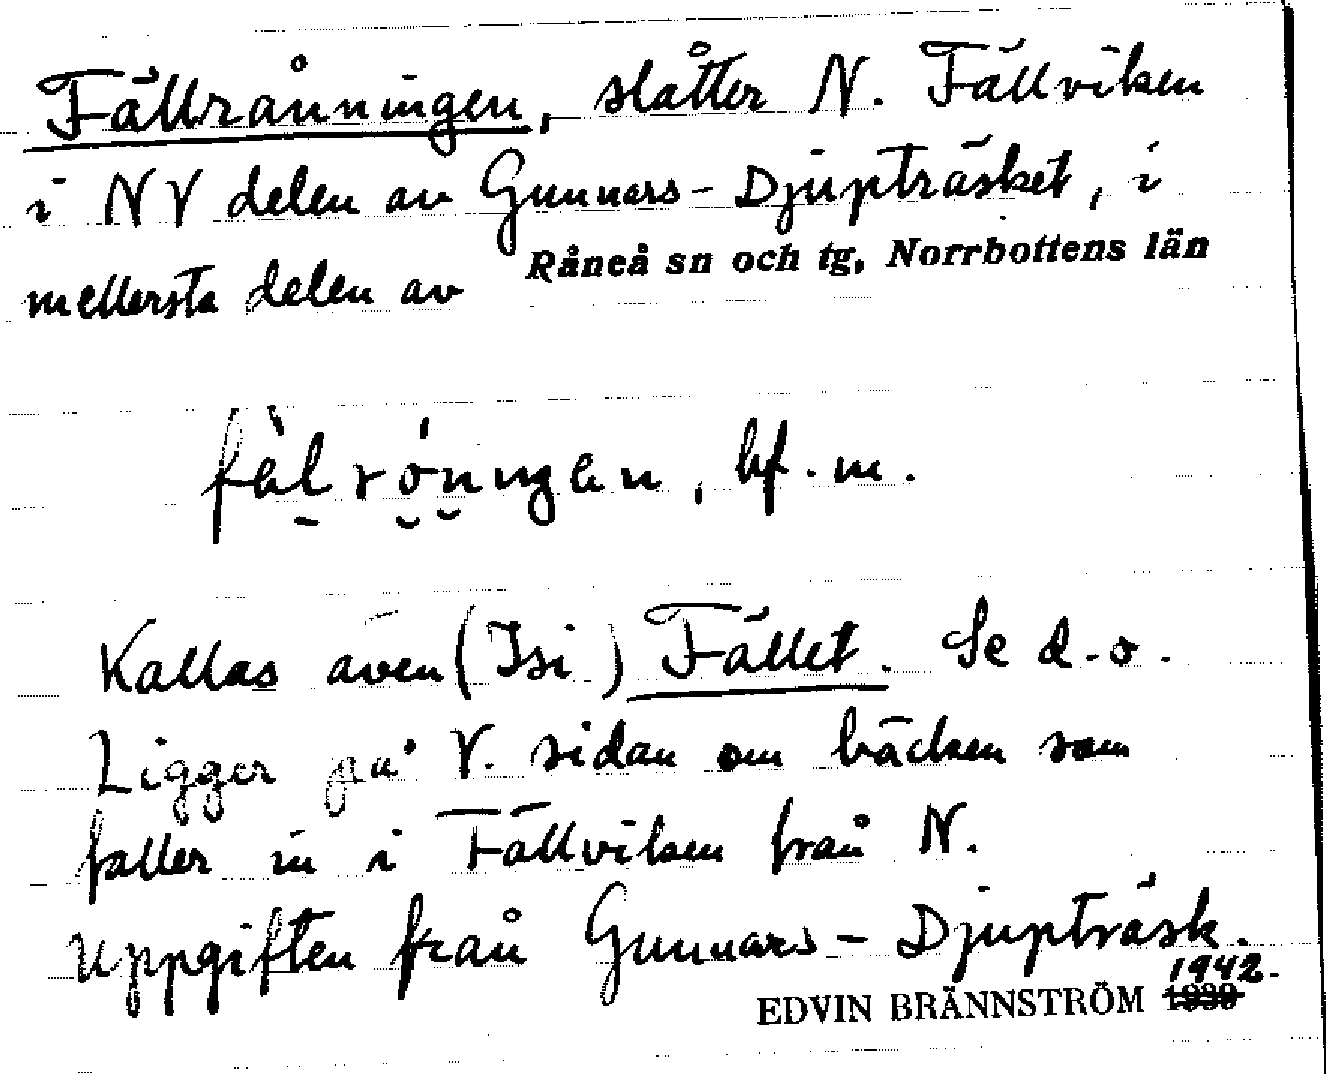 Fällråningen, slåtter N. Fällviken
i NV delen av Gunnars-Djupträsket, i
mellersta delen av Råneå sn och tg, Norrbottens län
fèl róningen, bf. m.
Kallas även (Isi) Fället. Se d.o.
Ligger på V. sidan om bäcken som
faller in i Fällviken från N.
Uppgiften från Gunnars-Djupträsk.
1942.
EDVIN BRÄNNSTRÖM 1939